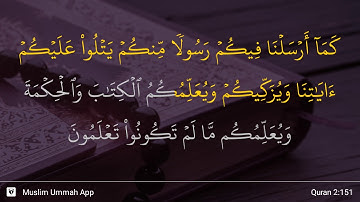 كَمَآ أَرْسَلْنَا فِيكُمْ رَسُولًا مِّنكُمْ يَتْلُوا۟ عَلَيْكُمْ
ءَايَـٰتِنَا وَيُزَكِّيكُمْ وَيُعَلِّمُكُمُ ٱلْكِتَـٰبَ وَٱلْحِكْمَةَ
وَيُعَلِّمُكُم مَّا لَمْ تَكُونُوا۟ تَعْلَمُونَ
Muslim Ummah App
Quran 2:151